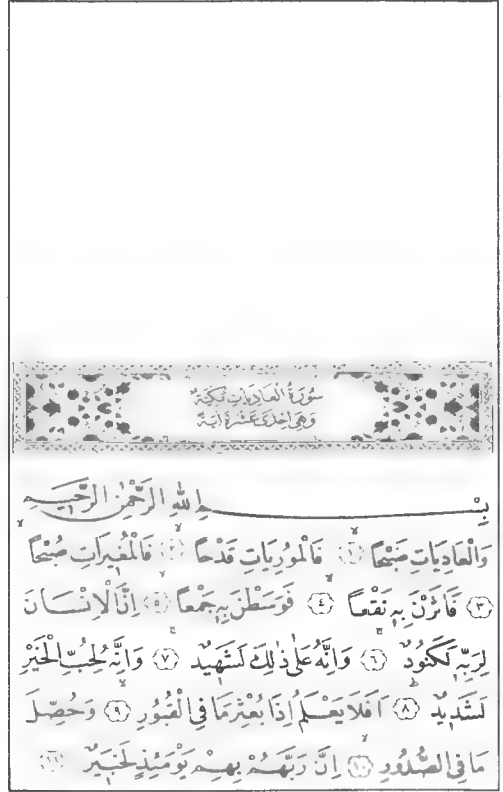 سُورَةُ الْعَادِيَاتِ مَكِّيَّةٌ
وَهِيَ اِحْدٰى عَشْرَةَ اٰيَةً
بِسْمِ اللّٰهِ الرَّحْمٰنِ الرَّحٖيمِ
وَالْعَادِيَاتِ ضَبْحًا ﴿١﴾ فَالْمُورِيَاتِ قَدْحًا ﴿٢﴾ فَالْمُغٖيرَاتِ صُبْحًا
﴿٣﴾ فَاَثَرْنَ بِهٖ نَقْعًا ﴿٤﴾ فَوَسَطْنَ بِهٖ جَمْعًا ﴿٥﴾ اِنَّ الْاِنْسَانَ
لِرَبِّهٖ لَكَنُودٌ ﴿٦﴾ وَاِنَّهُ عَلٰى ذٰلِكَ لَشَهٖيدٌ ﴿٧﴾ وَاِنَّهُ لِحُبِّ الْخَيْرِ
لَشَدٖيدٌ ﴿٨﴾ اَفَلَا يَعْلَمُ اِذَا بُعْثِرَ مَا فِي الْقُبُورِ ﴿٩﴾ وَحُصِّلَ
مَا فِي الصُّدُورِ ﴿١٠﴾ اِنَّ رَبَّهُمْ بِهِمْ يَوْمَئِذٍ لَخَبٖيرٌ ﴿١١﴾